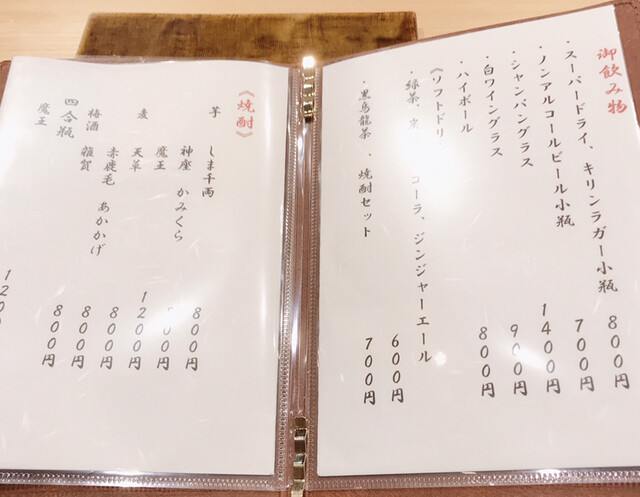 御飲み物
・スーパードライ、キリンラガー小瓶 800円
・ノンアルコールビール小瓶 700円
・シャンパングラス 1400円
・白ワイングラス 900円
・ハイボール 800円
《ソフトドリ
・緑茶、 コーラ、ジンジャーエール 600円
・黒烏龍茶、焼酎セット 700円
《焼酎》
芋 しま千両 800円
神座 かみくら 00円
魔王 1200円
麦 天草 800円
赤鹿毛 あかかげ 800円
梅酒 雑賀 800円
四合瓶
魔王 120